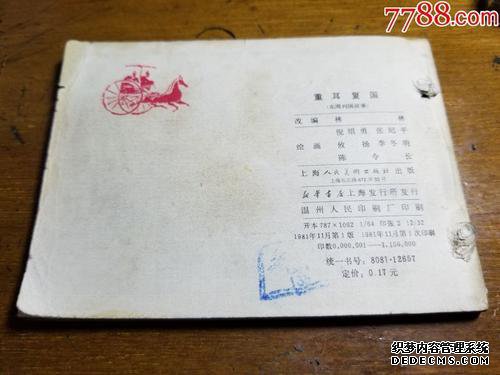 7788.com
重耳复国
（东周列国故事）
改编 林 林
倪绍勇 张纪平
绘画 攸 扬 李冬明
陈 令 长
上海人民美术出版社出版
上海长乐路672弄33号
新华书店上海发行所发行
温州人民印刷厂印刷
开本 787×1092 1/64 印张 2 12/32
1981年11月第1版 1981年11月第1次印刷
印数0,000,001—1,150,000
统一书号：8081·12657
定价：0.17元
7788.com
织梦内容管理系统
DEDECMS.COM